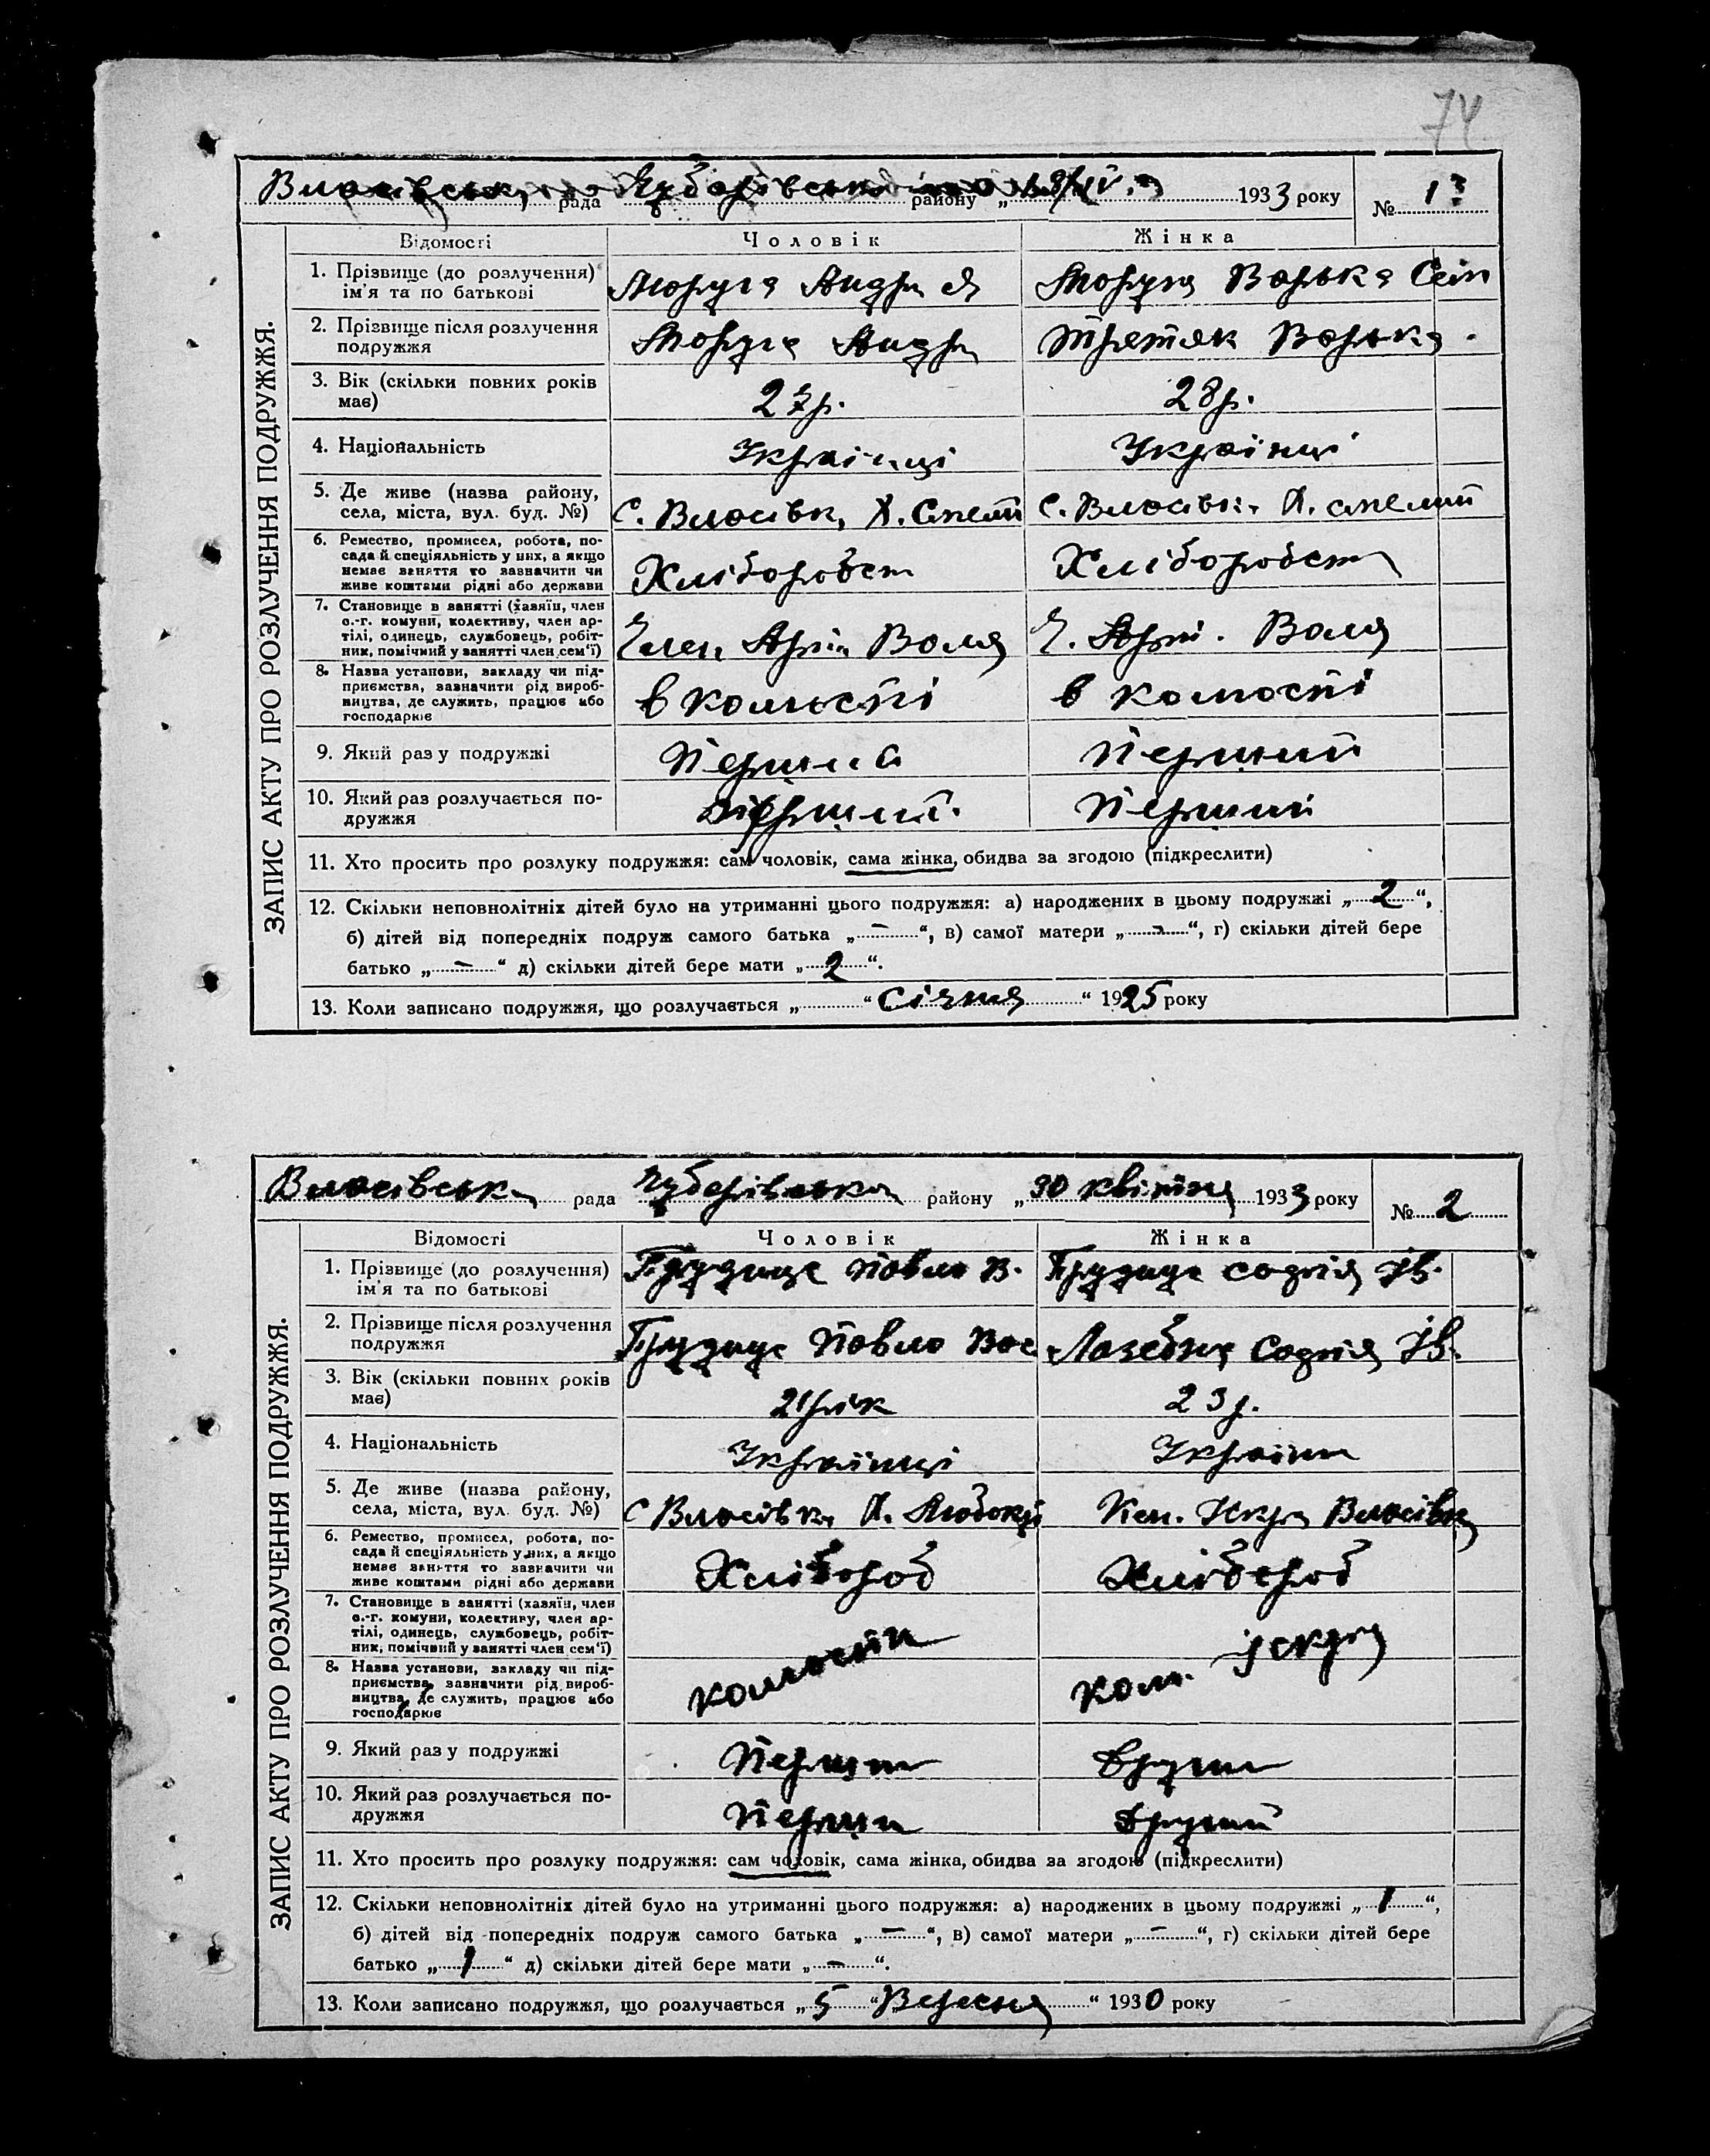 74
Власівська рада Чубарівська району „ 1933 року
№ 1
Відомості Чоловік Жінка
ЗАПИС АКТУ ПРО РОЗЛУЧЕННЯ ПОДРУЖЖЯ.
1. Прізвище (до розлучення)
ім'я та по батькові
Варька
2. Прізвище після розлучення
подружжя
Третяк Варька
3. Вік (скільки повних років
має)
28р.
4. Національність
Українці Українці
5. Де живе (назва району,
села, міста, вул. буд. №)
С. Власівк, С. Власівк.
6. Ремество, промисел, робота, по-
сада й спеціяльність у них, а якщо
немає заняття то зазначити чи
живе коштами рідні або держави
Хліборобст Хліборобст
7. Становище в занятті (хазяїн, член
с.-г. комуни, колективу, член ар-
тілі, одинець, службовець, робіт-
ник, помічний у занятті член сем'ї)
Член Воля Ч. Воля
8. Назва установи, закладу чи під-
приємства, зазначити рід вироб-
ництва, де служить, працює або
господарює
в колгоспі в колгоспі
9. Який раз у подружжі
Перший Перший
10. Який раз розлучається по-
дружжя
Перший. Перший
11. Хто просить про розлуку подружжя: сам чоловік, сама жінка, обидва за згодою (підкреслити)
12. Скільки неповнолітніх дітей було на утриманні цього подружжя: а) народжених в цьому подружжі „ 2 “,
б) дітей від попередніх подруж самого батька „ – “, в) самої матери „ – “, г) скільки дітей бере
батько „ – “ д) скільки дітей бере мати „ 2 “.
13. Коли записано подружжя, що розлучається „ “ Січня “ 1925 року
Власівська рада Чубарівська району „ 30 квітня 1933 року
№ 2
Відомості Чоловік Жінка
ЗАПИС АКТУ ПРО РОЗЛУЧЕННЯ ПОДРУЖЖЯ.
1. Прізвище (до розлучення)
ім'я та по батькові
Павло В. Софія Ів.
2. Прізвище після розлучення
подружжя
Павло Вас Лазебна Софія Ів.
3. Вік (скільки повних років
має)
21 рік 23 р.
4. Національність
Українці Україн
5. Де живе (назва району,
села, міста, вул. буд. №)
С Власівк Іскра Власівка
6. Ремество, промисел, робота, по-
сада й спеціяльність у них, а якщо
немає заняття то зазначити чи
живе коштами рідні або держави
Хлібороб Хлібороб
7. Становище в занятті (хазяїн, член
с.-г. комуни, колективу, член ар-
тілі, одинець, службовець, робіт-
ник, помічний у занятті член сем'ї)
8. Назва установи, закладу чи під-
приємства, зазначити рід вироб-
ництва, де служить, працює або
господарює
колгоспі кол. іскра
9. Який раз у подружжі
Перши други
10. Який раз розлучається по-
дружжя
Перши Другий
11. Хто просить про розлуку подружжя: сам чоловік, сама жінка, обидва за згодою (підкреслити)
12. Скільки неповнолітніх дітей було на утриманні цього подружжя: а) народжених в цьому подружжі „ 1 “,
б) дітей від попередніх подруж самого батька „ – “, в) самої матери „ – “, г) скільки дітей бере
батько „ 1 “ д) скільки дітей бере мати „ – “.
13. Коли записано подружжя, що розлучається „ 5 “ Вересня “ 1930 року